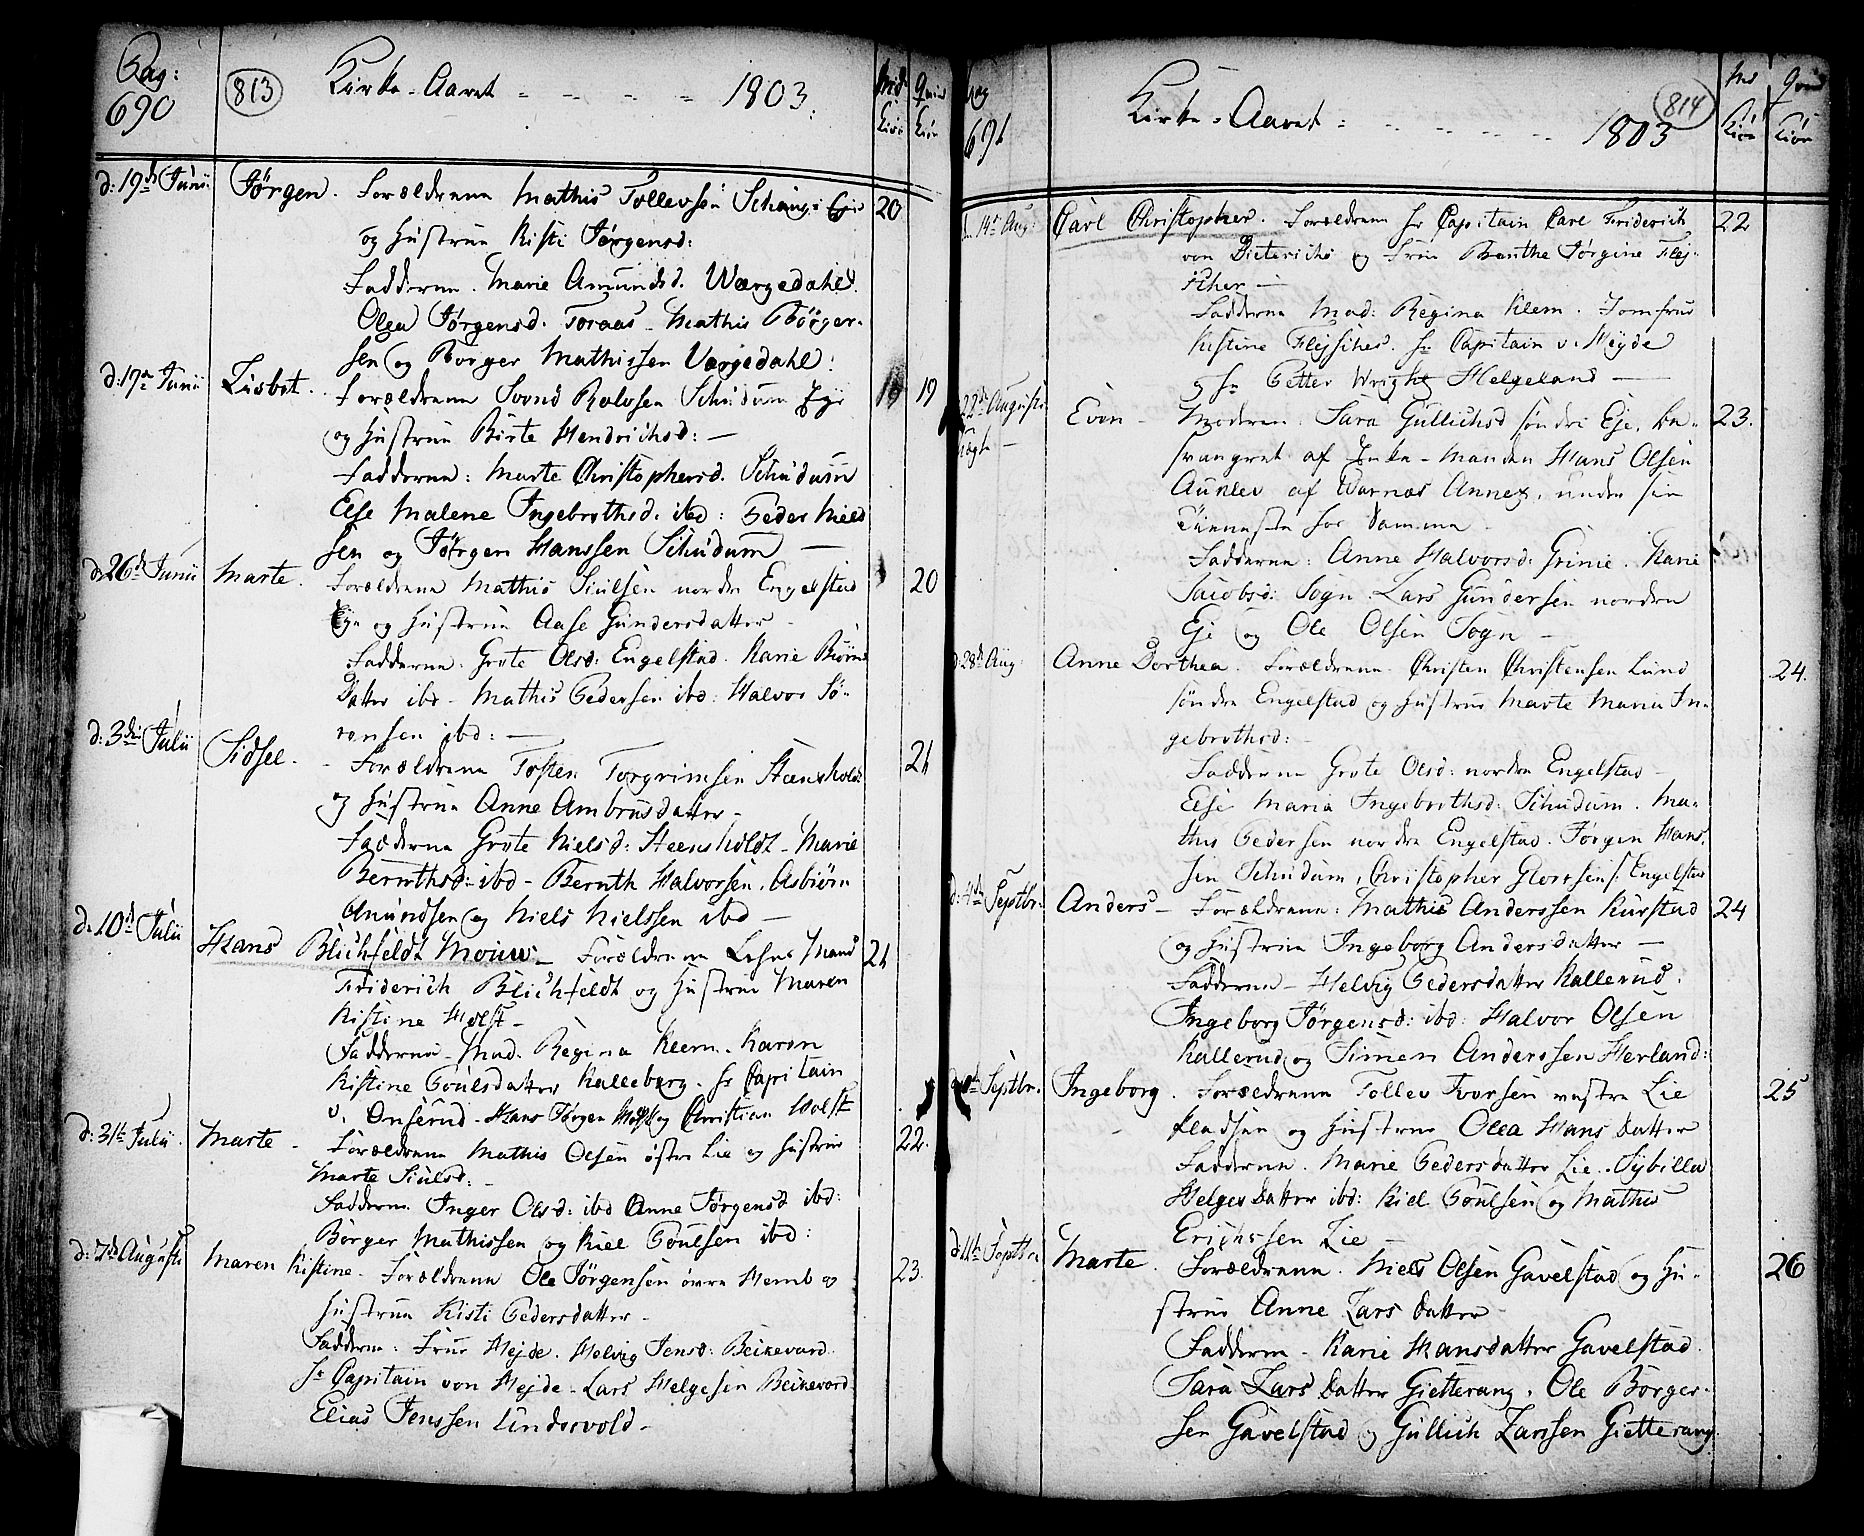 Pag: 690 813 Kirke-Aaret - - - - 1803. Mid Kiön Qvind Kiön
d: 19de Junii Jörgen. Forældrene Mathis Tollevsen Eje 20
og Hustrue Kisti Jörgensd:
Fadderne. Marie Amundsd. Wærgedahl.
Olea Jörgensd. Toraas - Mathis Börger-
sen og Borger Mathissen Værgedahl:
d. 19de Junii Lisbet. Forældrene Svend Rolvsen Schudum Eje 19
og Hustrue Birte Hendrichsd: -
Fadderne: Marte Christophersd. Schudum
Else Malene Ingebrethsd. ibd: Peder Niels
sen og Jörgen Hanssen Schudum -
d. 26de Junii Marte. Forældrene Mathis Siulsen nordre Engelstad 20
Eje og Hustrue Aase Gundersdatter -
Fadderne. Grete Olsd: Engelstad. Karie Biörns
Datter ibd - Mathis Pedersen ibd: Halvor Sö-
rensen ibd: -
d: 3die Julii Sidsel. - Forældrene Tosten Torgrimsen Steensholdt 21
og Hustrue Anne Ambrusdatter -
Fadderne Grete Nielsd: Steensholdt - Marie
Bernthsd: ibd - Bernth Halvorsen, Asbiörn
Anundsen og Niels Nielssen ibd -
d. 10de Julii Hans Blichfeldt - Forældrene Lehns Mand 21
Friderich Blichfeldt og Hustrue Maren
Kistine Holst -
Fadderne - Mad. Regina Klem. Karen
Kistine Poulsdatter Kalleberg. Hr Capitain
v. Hans Jörgen Holst og Christian Holst
d: 31te Julii. Marte - Forældrene Mathis Olsen östre Lie og Hustrue 22.
Marte Siulsd: -
Fadderne. Inger Olsd: ibd Anne Jörgensd ibd:
Börger Mathissen og Kiel Poulsen ibd:
d: 7de Augusti Maren Kistine - Forældrene Ole Jörgensen övre Hemb og 23.
Hustrue Kisti Pedersdatter -
Fadderne: Frue Hejde. Helvig Jensd: Beikevard.
Hr Capitain von Hejde - Lars Helgesen Beikevard
Elias Jenssen Undersvold -
Pag 691 Kirke-Aaret - - - - 1803 814 Kiön Qvind Kiön
d. 14de Aug: Carl Christopher. Forældrene Hr Capitain Carl Friderich 22
von Dieterichs og Frue Benthe Jörgine Flej-
scher -
Fadderne Mad: Regina Klem. Jomfrue
Kistine Flejscher. Hr Capitain v. Hejde
og Hr Petter Wright Helgeland -
22de Augusti Even - Moderen: Sara Gullichsd söndre Eje, be- 23.
svangret af Enke-Manden Hans Olsen
Aunlev af Warnæs Annex, under sin
Tienneste for Damme -
Fadderne: Anne Halvorsd: Grinie. Karie
Jacobsd: Sogn. Lars Gundersen nordre
Eje og Ole Olsen Sogn -
d: 28de Aug Anne Dorthea. Forældrene Christen Christensen Lund 24.
söndre Engelstad og Hustrue Marte Maria In-
gebrethsd: -
Fadderne Grete Olsd: nordre Engelstad -
Else Maria Ingebrethsd: Schudum. Ma-
this Pedersen nordre Engelstad. Jörgen Hans.
sen Schudum, Christopher s. Engelstad
d: 4de Septbr: Anders - Forældrene: Mathis Anderssen Kurstad 24
og Hustrue Ingeborg Andersdatter -
Fadderne - Helvig Pedersdatter Kallerud.
Ingeborg Jörgensd: ibd: Halvor Olsen
Kallerud og Simen Anderssen Herland:
Septbr. Ingeborg. Forældrene Tollev Iversen vestre Lie 25
Pladsen og Hustrue Olea Hans Datter
Fadderne. Marie Pedersdatter Lie. Sybilla
Helges Datter ibd: Kiel Poulsen og Mathis
Erichssen Lie -
d. 11te Septbr: Marte. Forældrene. Niels Olsen Gavelstad og Hu- 26
strue Anne Lars Datter
Fadderne - Karie Hansdatter Gavelstad.
Sara Lars Datter Gietterang. Ole Börger-
sen Gavelstad og Gullich Larssen Gietterang.